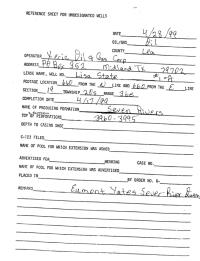 REFERENCE SHEET FOR UNDESIGNATED WELLS
DATE 4/28/99
OIL/GAS Oil
COUNTY Lea
OPERATOR Xeric Oil & Gas Corp
ADDRESS PO Box 352 Midland TX 79702
LEASE NAME, WELL NO. Lisa State #1-A
FOOTAGE LOCATION 660 FROM THE N LINE AND 660 FROM THE E LINE
SECTION 19 TOWNSHIP RANGE 36E
COMPLETION DATE 4/17/99
NAME OF PRODUCING FORMATION Seven Rivers
TOP OF PERFORATIONS 3960-3995
DEPTH TO CASING SHOE
C-123 FILED
NAME OF POOL FOR WHICH EXTENSION WAS ASKED
ADVERTISED FOR HEARING CASE NO.
NAME OF POOL FOR WHICH EXTENSION WAS ADVERTISED
PLACED IN BY ORDER NO. R-
REMARKS Eumont Yates Seven River Queen